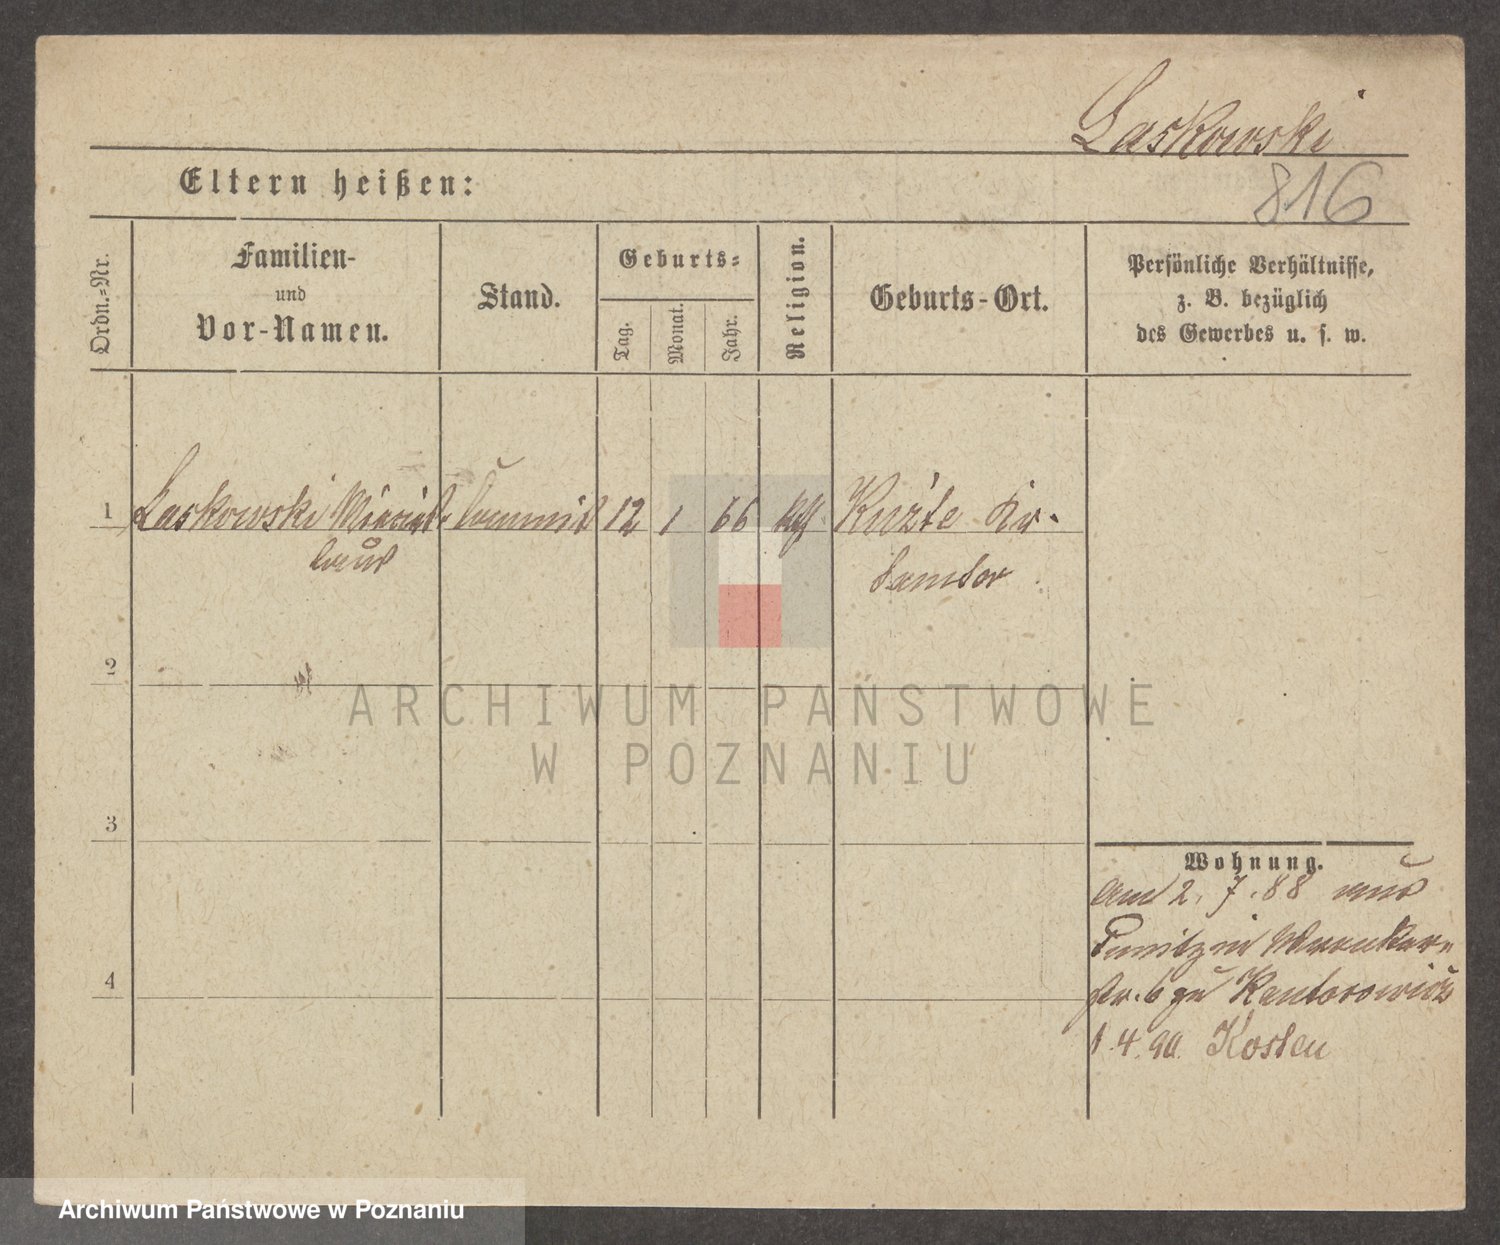 Laskowski
816
Eltern heißen:
Ordn.=Nr.
Familien-
und
Vor-Namen.
Stand.
Geburts=
Tag.
Monat.
Jahr.
Religion.
Geburts-Ort.
Persönliche Verhältnisse,
z. B. bezüglich
des Gewerbes u. s. w.
1
Laskowski Miecis-
laus
Commis
12
1
66
kth
Kuźle Kr.
Samter
2
3
4
Wohnung.
am 2. 7. 88 aus
Punitz in
str. 6 zu Kantorowicz
1.4.90 Kosten
ARCHIWUM PAŃSTWOWE
W POZNANIU
Archiwum Państwowe w Poznaniu